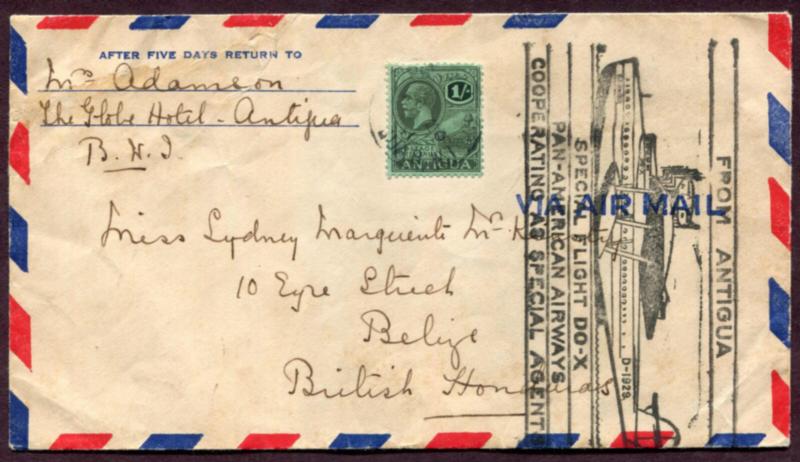 AFTER FIVE DAYS RETURN TO
Mrs Adamson
The Globe Hotel - Antigua
B.W.I.
1/-
ANTIGUA
VIA AIR MAIL
Miss Sydney Marguerite
10 Eyre Street
Belize
British Honduras
FROM ANTIGUA
D-1929
SPECIAL FLIGHT DO-X
PAN-AMERICAN AIRWAYS
COOPERATING AS SPECIAL AGENTS